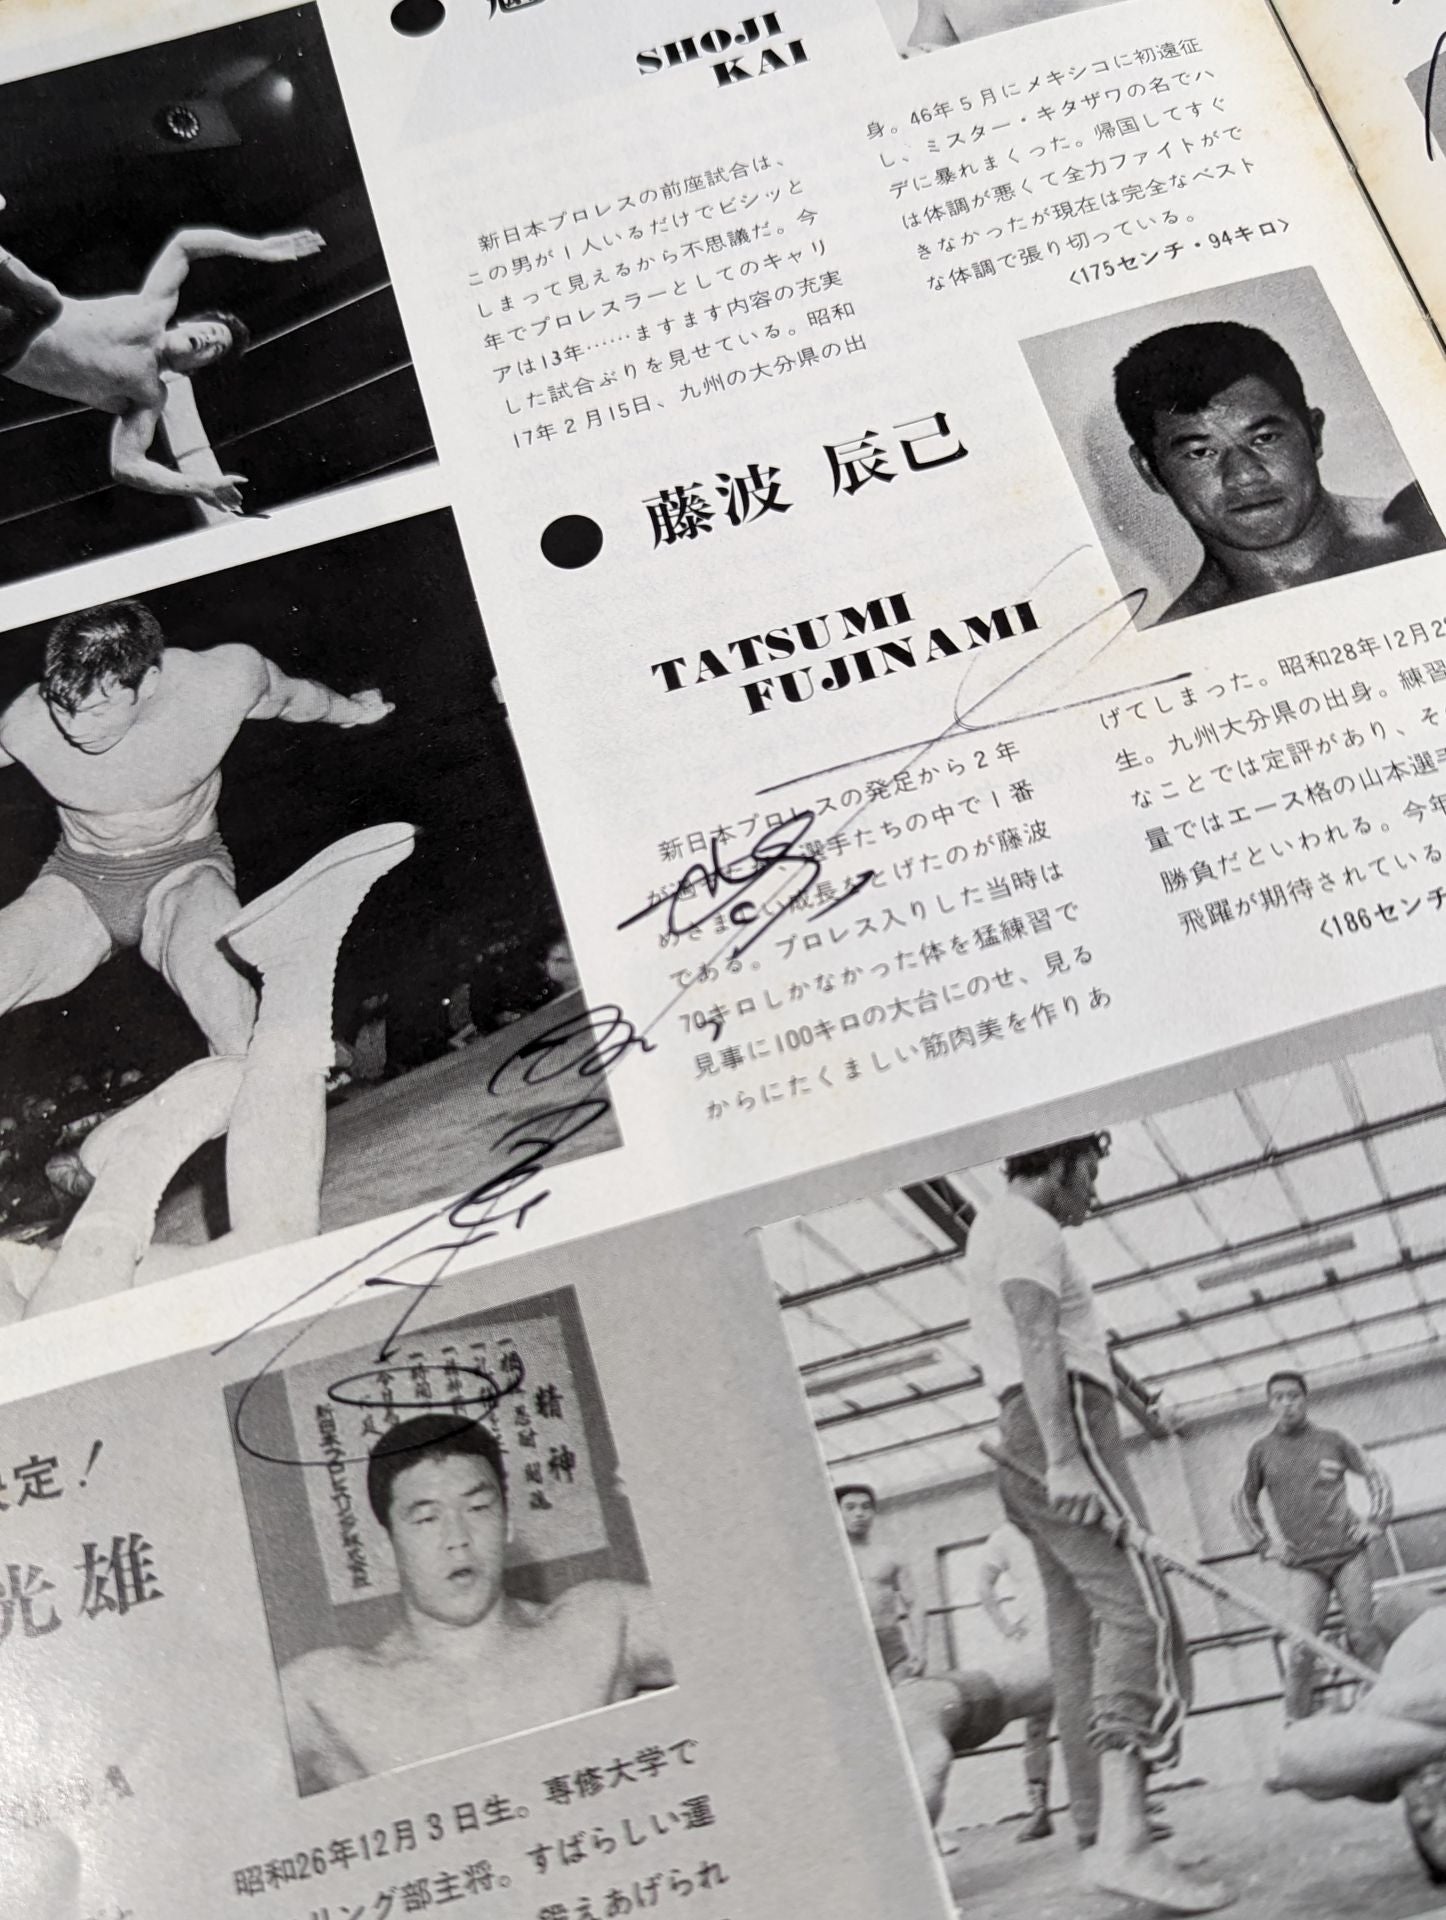 SHOJI
KAI
新日本プロレスの前座試合は、
この男が1人いるだけでビシッと
しまって見えるから不思議だ。今
年でプロレスラーとしてのキャリ
アは13年……ますます内容の充実
した試合ぶりを見せている。昭和
17年2月15日、九州の大分県の出
身。46年5月にメキシコに初遠征
し、ミスター・キタザワの名でハ
デに暴れまくった。帰国してすぐ
は体調が悪くて全力ファイトがで
きなかったが現在は完全なベスト
な体調で張り切っている。
<175センチ・94キロ>
●藤波 辰己
TATSUMI
FUJINAMI
新日本プロレスの発足から2年
選手たちの中で1番
めざましい成長をとげたのが藤波
である。プロレス入りした当時は
70キロしかなかった体を猛練習で
見事に100キロの大台にのせ、見る
からにたくましい筋肉美を作りあ
げてしまった。昭和28年12月2
生。九州大分県の出身。練習
なことでは定評があり、そ
量ではエース格の山本選手
勝負だといわれる。今年
飛躍が期待されている
<186センチ
定!
光雄
精神
昭和26年12月3日生。専修大学で
リング部主将。すばらしい運
鍛えあげられ